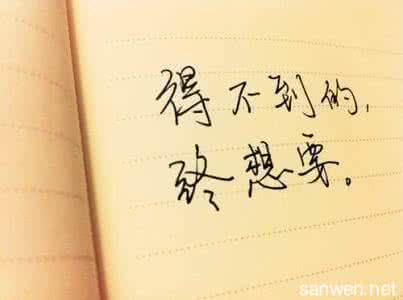 得不到的,
终想要。
sanwen.net